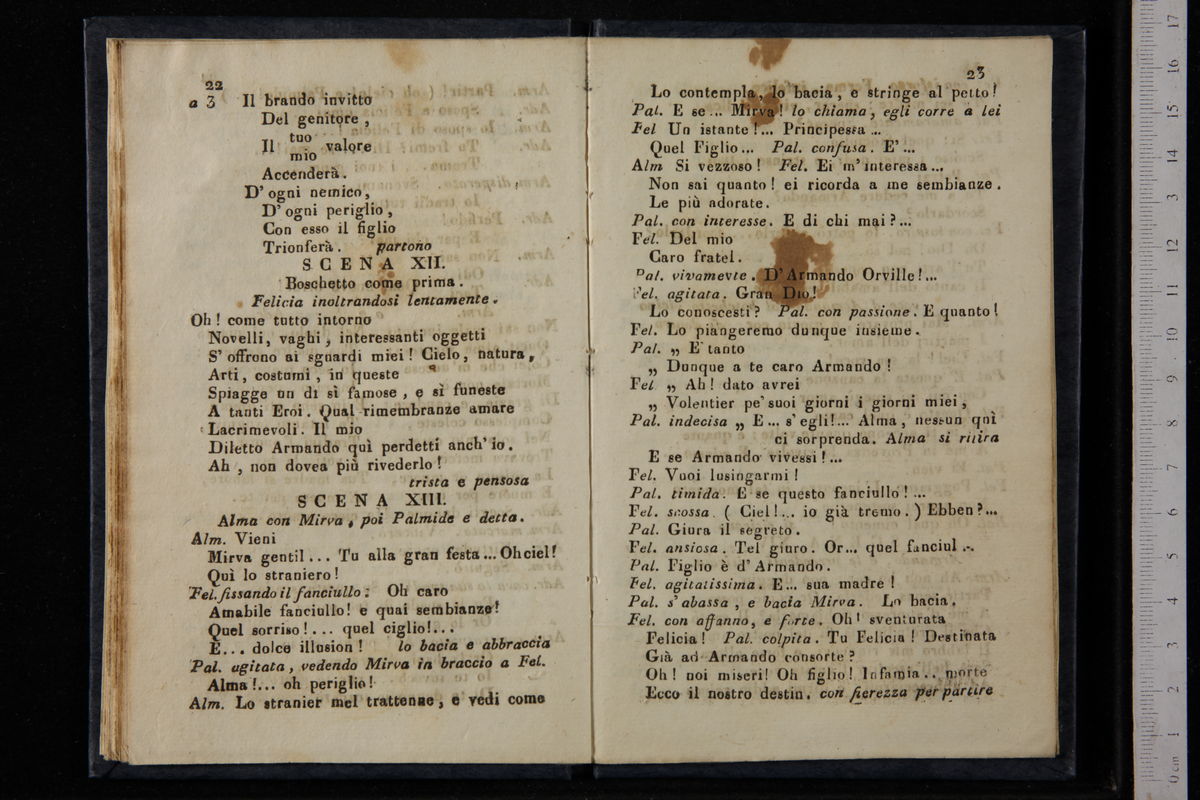 22
a 3 Il brando invitto
Del genitore,
Il tuo valore
mio
Accenderà.
D' ogni nemico,
D' ogni periglio,
Con esso il figlio
Trionferà. partono
SCENA XII.
Boschetto come prima.
Felicia inoltrandosi lentamente.
Oh! come tutto intorno
Novelli, vaghi, interessanti oggetti
S' offrono ai sguardi miei! Cielo, natura,
Arti, costumi, in queste
Spiagge un dì sì famose, e sì funeste
A tanti Eroi. Qual rimembranze amare
Lacrimevoli. Il mio
Diletto Armando quì perdetti anch' io.
Ah, non dovea più rivederlo!
trista e pensosa
SCENA XIII.
Alma con Mirva, poi Palmide e detta.
Alm. Vieni
Mirva gentil... Tu alla gran festa... Oh ciel!
Quì lo straniero!
Fel. fissando il fanciullo: Oh caro
Amabile fanciullo! e quai sembianze!
Quel sorriso!... quel ciglio!...
E... dolce illusion! lo bacia e abbraccia
Pal. agitata, vedendo Mirva in braccio a Fel.
Alma!... oh periglio!
Alm. Lo stranier mel trattenne, e vedi come
23
Lo contempla, lo bacia, e stringe al petto!
Pal. E se... Mirva! lo chiama, egli corre a lei
Fel Un istante!... Principessa...
Quel Figlio... Pal. confusa. E'...
Alm Si vezzoso! Fel. Ei m' interessa...
Non sai quanto! ei ricorda a me sembianze.
Le più adorate.
Pal. con interesse. E di chi mai?...
Fel. Del mio
Caro fratel.
Pal. vivamevte. D' Armando Orville!...
Fel. agitata. Gran Dio!
Lo conoscesti? Pal. con passione. E quanto!
Fel. Lo piangeremo dunque insieme.
Pal. „ E' tanto
„ Dunque a te caro Armando!
Fel „ Ah! dato avrei
„ Volentier pe' suoi giorni i giorni miei,
Pal. indecisa „ E... s' egli!... Alma, nessun quì
ci sorprenda. Alma si ritira
E se Armando vivessi!...
Fel. Vuoi lusingarmi!
Pal. timida. E se questo fanciullo!...
Fel. scossa. (Ciel!... io già tremo.) Ebben?...
Pal. Giura il segreto.
Fel. ansiosa. Tel giuro. Or... quel fanciul...
Pal. Figlio è d' Armando.
Fel. agitatissima. E... sua madre!
Pal. s' abassa, e bacia Mirva. Lo bacia.
Fel. con affanno, e forte. Oh! sventurata
Felicia! Pal. colpita. Tu Felicia! Destinata
Già ad Armando consorte?
Oh! noi miseri! Oh figlio! Infamia.. morte
Ecco il nostro destin. con fierezza per partire